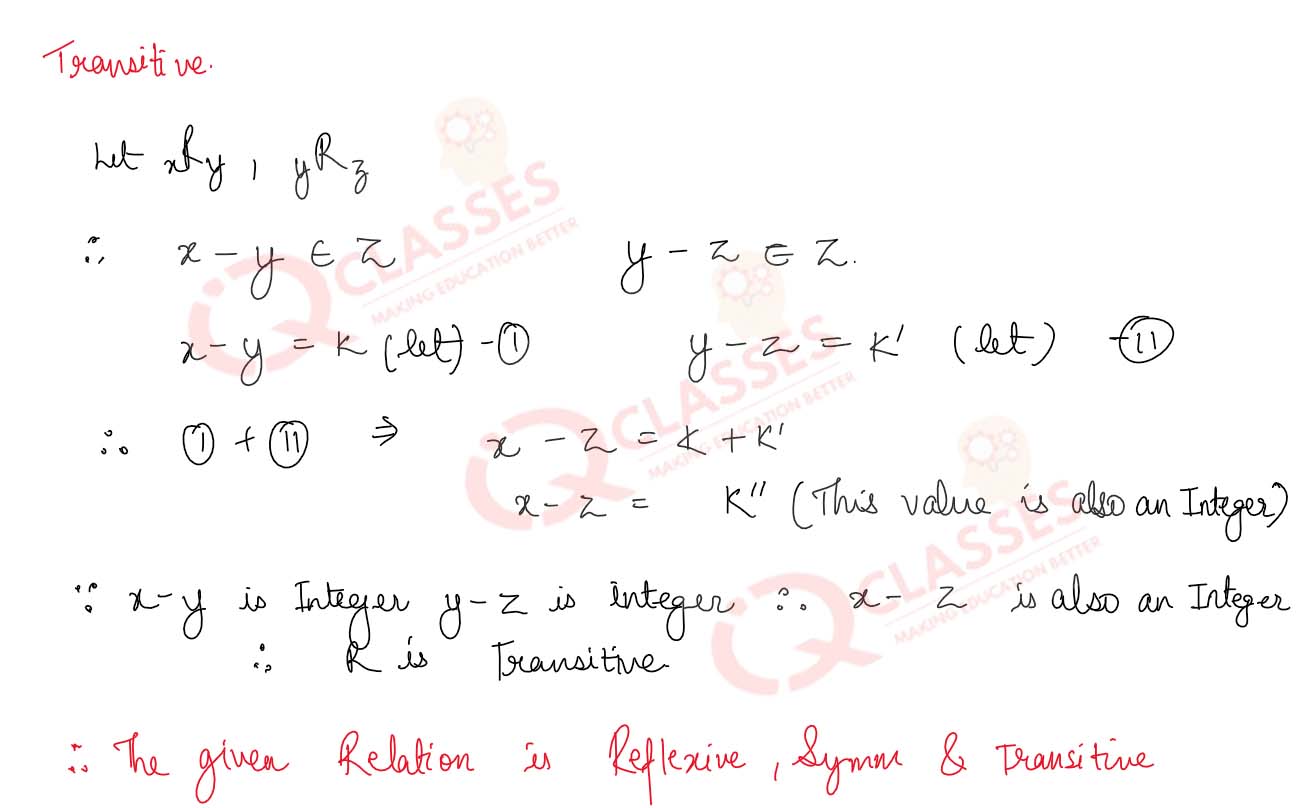 Transitive.
Let xRy, yRz
∴ x - y ∈ Z y - z ∈ Z.
x - y = K (let) - ① y - z = K' (let) - ⑪
∴ ① + ⑪ ⇒ x - z = K + K'
x - z = K'' (This value is also an Integer)
∵ x - y is Integer y - z is integer ∴ x - z is also an Integer
∴ R is Transitive.
∴ The given Relation is Reflexive, Symm & Transitive
Q CLASSES
MAKING EDUCATION BETTER
Q CLASSES
MAKING EDUCATION BETTER
Q CLASSES
MAKING EDUCATION BETTER